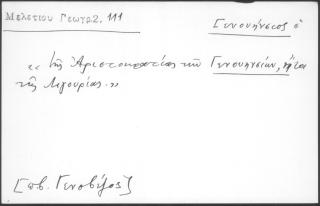 Μελετίου Γεωγρ2, 111
Γενουήνσιος ὁ
« τῆς Ἀριστοκρατείας τῶν Γενουησίων, ἤτοι
τῆς Λιγουρίας.»
[πβ. Γενοβέζος]